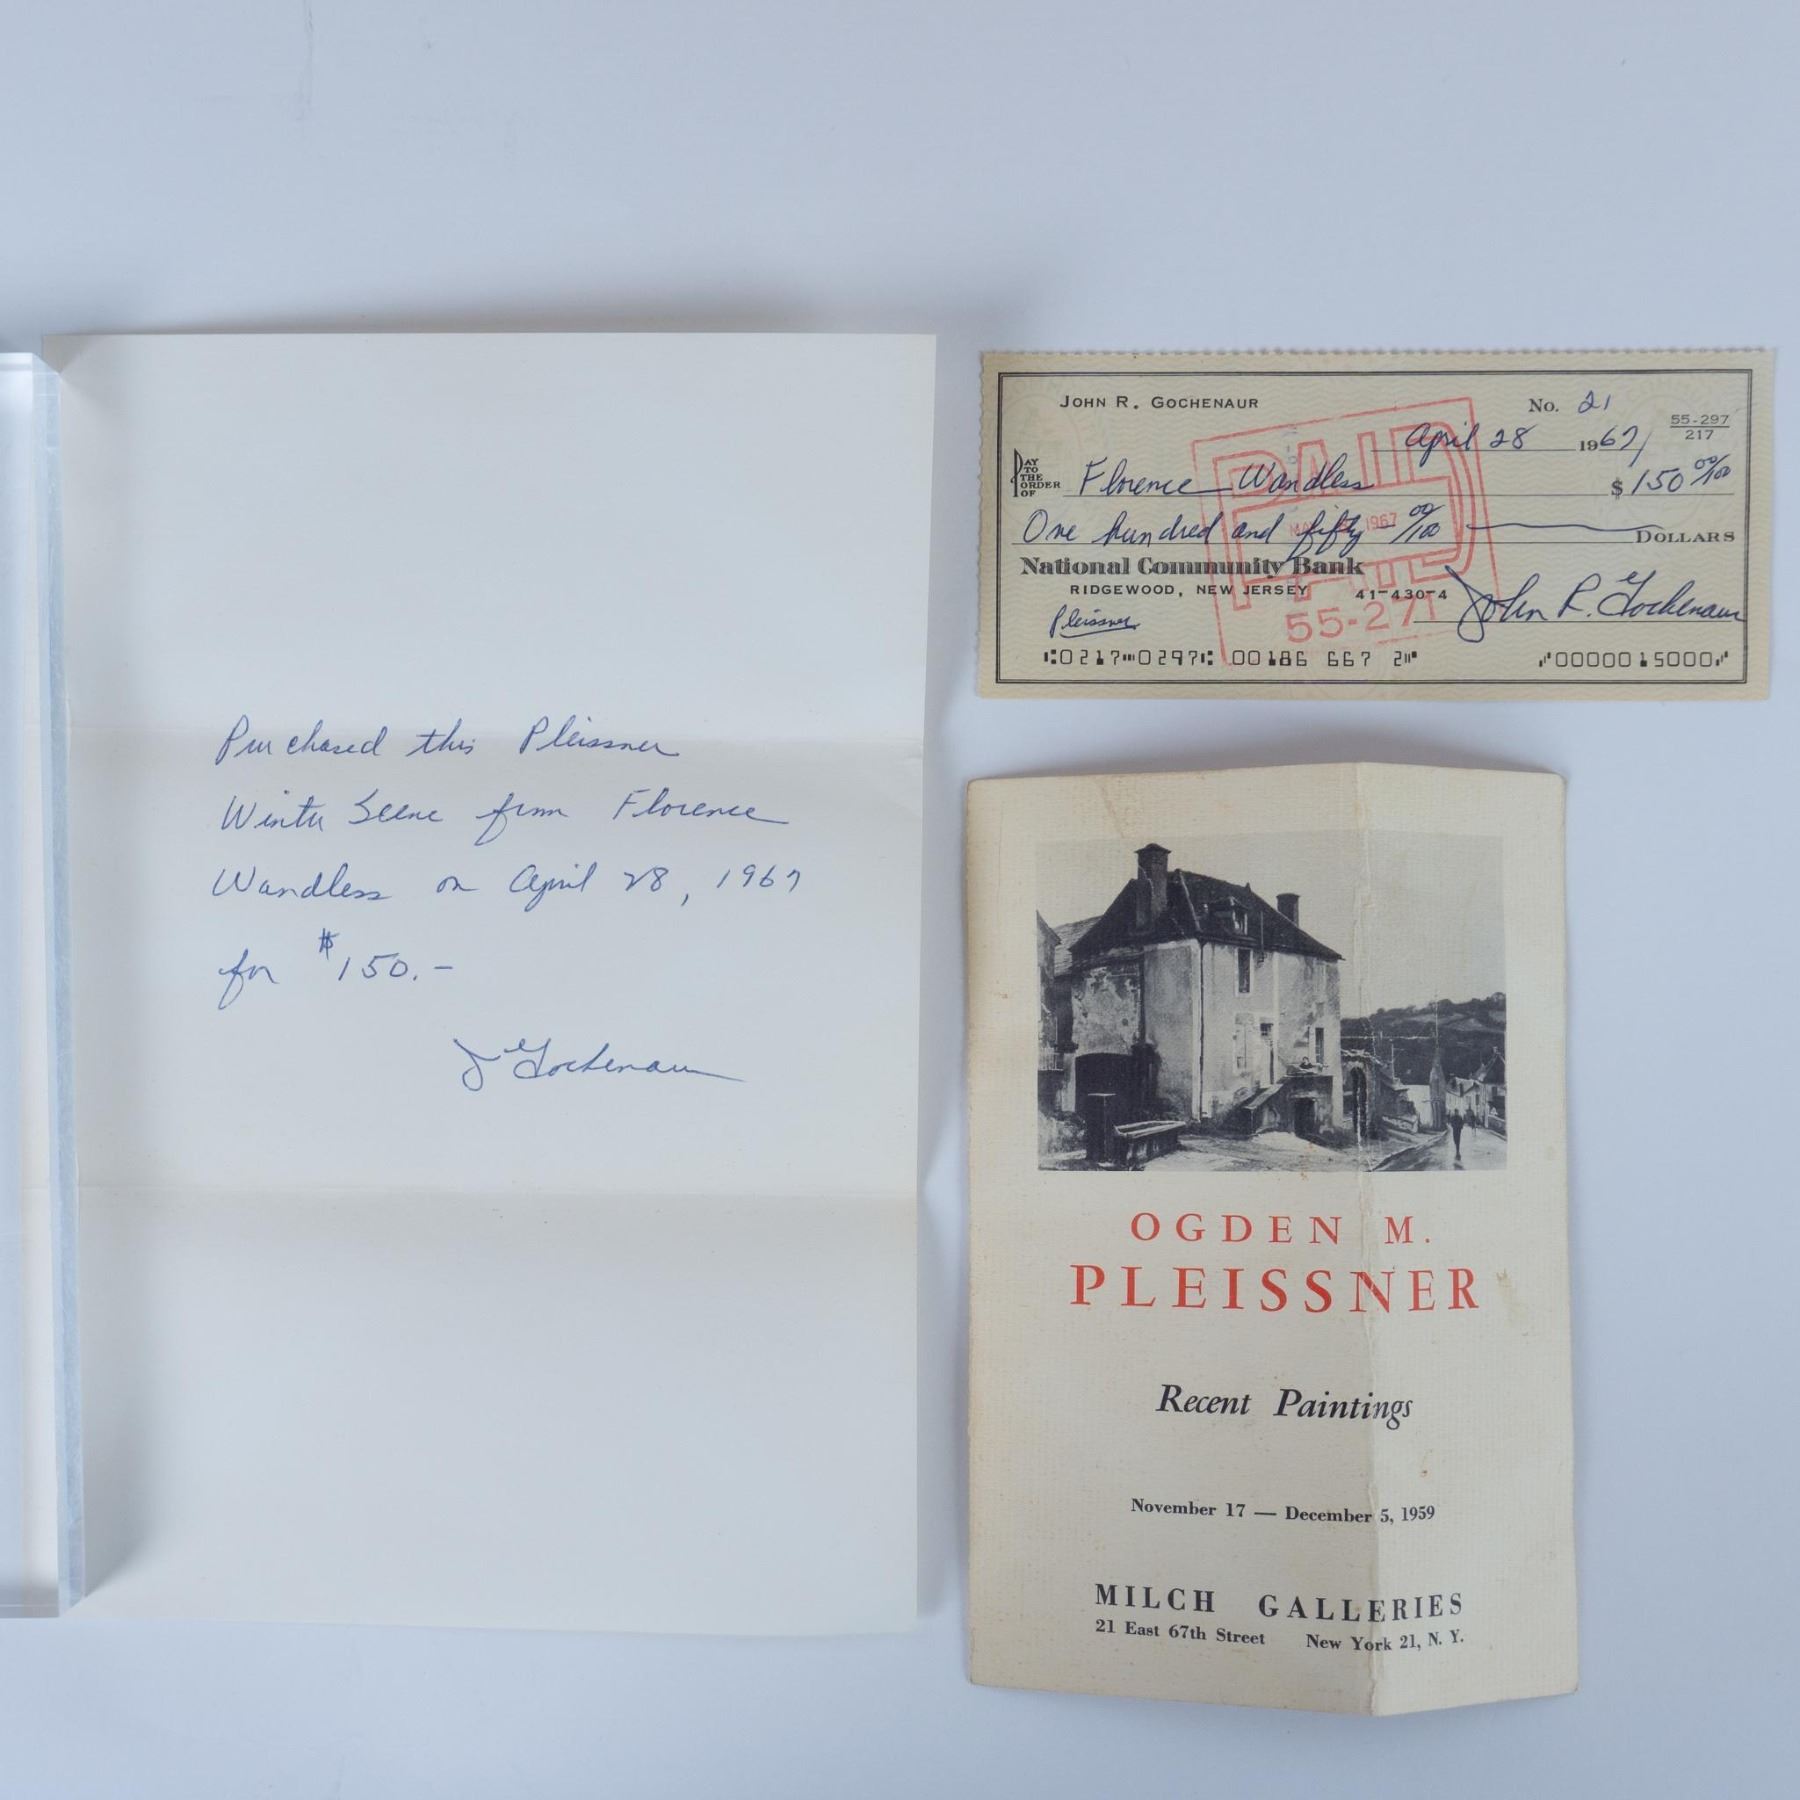 Purchased this Pleissner
Winter Scene from Florence
Wandless on April 28, 1967
for $150.-
J Gochenaur
JOHN R. GOCHENAUR
No. 21
55-297
217
April 28 1967
PAY TO THE ORDER OF Florence Wandless $150 00/100
One hundred and fifty - 00/100 DOLLARS
National Community Bank
RIDGEWOOD, NEW JERSEY 41-430-4
Pleissner
John R. Gochenaur
⑆0217⑉0297⑆ 00186 667 2⑈ ⑇0000015000⑇
PAID
1967
PAID
55-271
OGDEN M.
PLEISSNER
Recent Paintings
November 17 — December 5, 1959
MILCH GALLERIES
21 East 67th Street New York 21, N. Y.